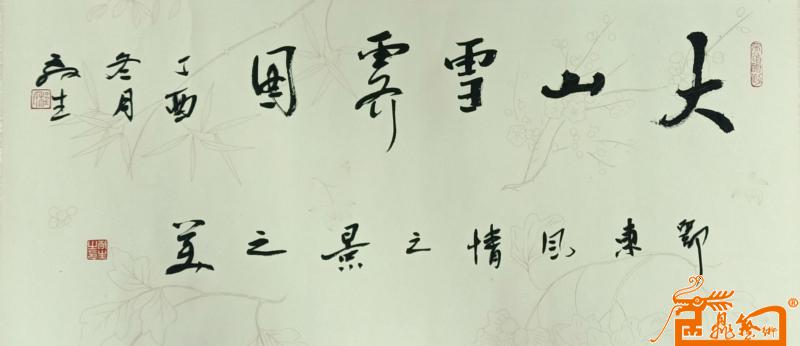 大山雪霁图
丁酉
冬月
生
鄂東风情之景之美